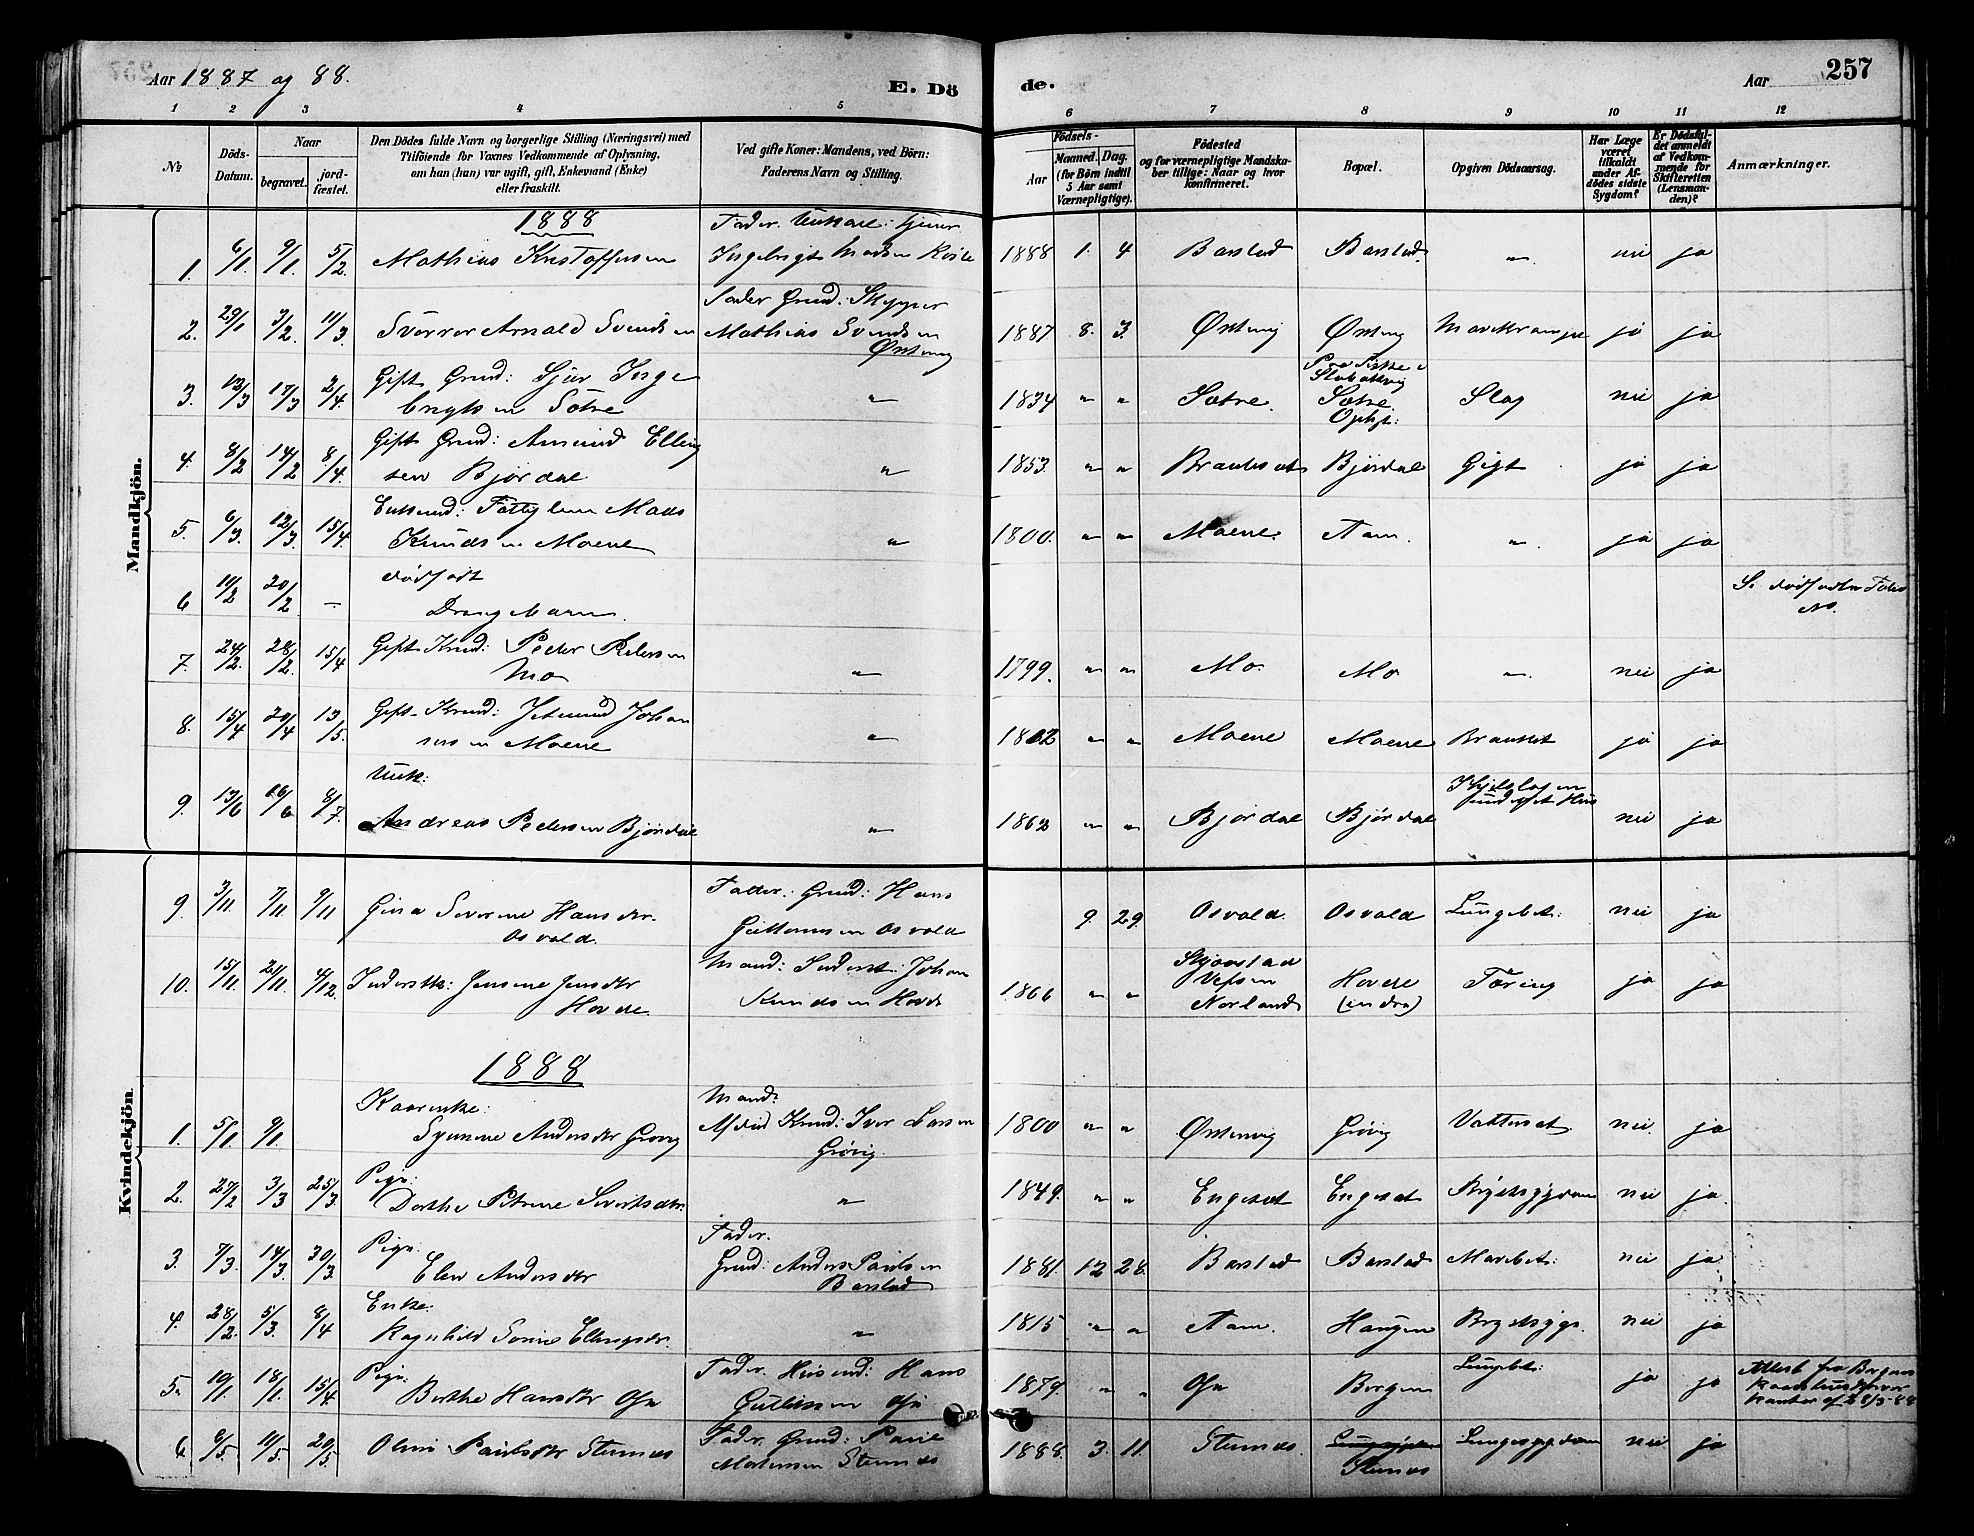 Aar 1887 og 88.
E. Dö
de.
Aar
257
1 2 3 4 5 6 7 8 9 10 11 12
№
Döds-Datum.
Naar
begravet.
jord-fæstet.
Den Dödes fulde Navn og borgerlige Stilling (Næringsvei) med
Tilföiende for Voxnes Vedkommende af Oplysning,
om han (hun) var ugift, gift, Enkemand (Enke)
eller fraskilt.
Ved gifte Koner: Mandens, ved Börn:
Faderens Navn og Stilling.
Födsels-
Aar
Maaned. Dag.
(for Börn indtil
5 Aar samt
Værnepligtige).
Födested
og for værnepligtige Mandska-
ber tillige: Naar og hvor
konfirmeret.
Bopæl.
Opgiven Dödsaarsag.
Har Læge
været
tilkaldt
under Af-
dödes sidste
Sygdom?
Er Dödsfal-
det anmeldt
af Vedkom-
mende for
Skifteretten
(Lensman-
den)?
Anmærkninger.
Mandkjön.
1888
1. 6/1 9/1 5/2 Mathias Kristoffersen
Fader. Ungkarl: tjener
Ingebrigt Madsen
1888 1. 4 Barstad Barstad " nei ja
2. 29/1 3/2 11/3. Sverrer Arnold Svendsen
Fader Grmd: Skipper
Mathias Svendsen
Østenvig
1887 8. 3. Østenvig Østenvig Mavekrampe ja ja
3. 12/3 17/3 2/4. Gift Grmd: Sjur Inge
brigtsen Sætre
"
1834 " " Sætre. Sætre. Slag nei ja
4. 8/2 14/2 8/4. Gift Grmd: Amund Elling
sen Bjørdal
"
1853. " " Brauteset Bjørdal Gigt ja ja
5. 6/3. 12/3 15/4. Enkemd: Fattiglem Mads
Knudsen Moene
"
1800. " " Moene. Aam. " ja ja
6 11/2 20/2 — dødfødt
Drengebarn
Se dødfødte
No.
7. 24/2. 28/2. 15/4 Gift Krmd: Peder Pedersen
Mo
"
1799. " " Mo Mo " nei ja
8. 15/4 20/4 13/5. Gift Krmd: Jetmund Johan
nesen Moene
"
1802 " " Moene Moene Brankket ja ja
9. 13/6 16/6 8/7. Ungk:
Andreas Pedersen Bjørdal
"
1862 " " Bjørdal Bjørdal nei ja
Kvindekjön
9. 3/11. 7/11 9/11 Gina Severine Hansdtr.
Osvold.
Fader. Grmd: Hans
Guttormsen Osvold
9. 29. Osvold. Osvold Lungebet: nei ja
10. 15/11. 21/11. 4/12. Inderstk: Jensine Jensdtr
Hovde.
Mand: Inderst: Johan
Knudsen Hovde
1866 " " Vefsen Nordland Hovde (indre) Tæring ja ja
1888
1. 5/1 9/1. Kaarenke:
Synnøve Andersdtr Grøvig
Mand:
Afdød Krmd: Iver Larsen
Grøvig.
1800 " " Østenvig Grøvig Vattersot nei. ja
2. 27/2 3/3 25/3. Pige:
Dorthe Petrine Sivertsdtr.
"
1849. " " Engeset Engeset Brystsygdom nei ja.
3. 7/3. 14/3. 30/3. Pige:
Elen Andersdtr
Fader.
Grmd: Anders Paulsen
Barstad
1881. 12 28. Barstad Barstad Mavebet: nei ja
4. 28/2. 5/3. 8/4 Enke:
Ragnhild Sørine Ellingsdtr.
"
1815 " " Aam. Haugen Brystsyge. nei ja
5. 10/1. 18/1. 15/4 Pige:
Berthe Hansdtr Øye
Fader. Husmd: Hans
Gulliksen Øye
1879. " " Øye Bergen Lungebet: ja ja
Attest fra Bergens
28/3-88
6. 6/5. 11/5. 20/5. Oline Paulsdtr Stennes
Fader. Grmd: Paul
Mortensen Stennes
1888. 3. 11. Stennes. Stennes Lungesygdom nei ja